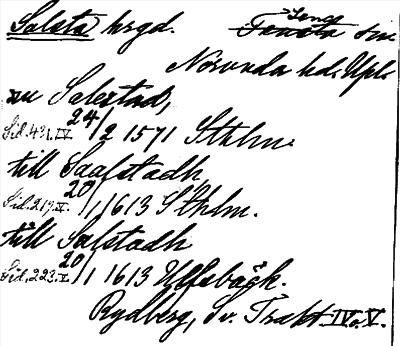 Salsta hrgd. Tensta sn
Norunda hd. Upl.
nu Salestad,
Sid. 431. IV 24/2 1571 Sthlm.
till Saafstadh
Sid. 219. V. 20/1 1613 Sthlm.
till Salstadh
Sid. 223. V 20/1 1613 Ulfsbäck.
Rydberg, Sv. Trakt. IV o. V.